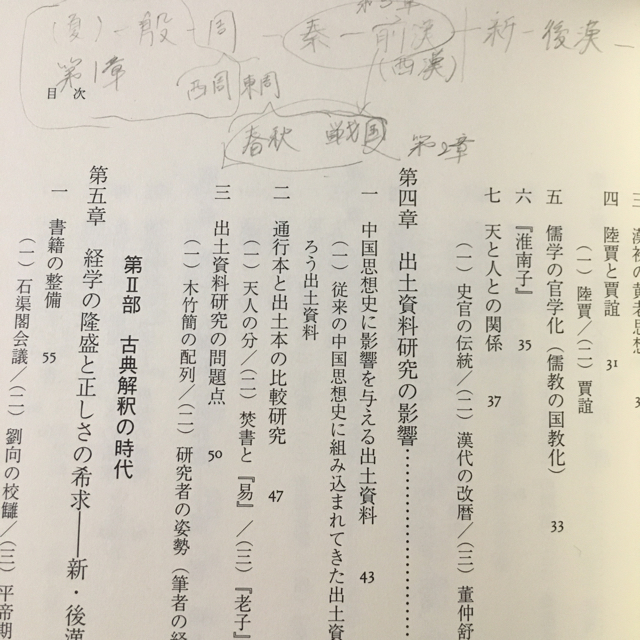 (夏)－殷－周－秦－前漢－新－後漢－
第1章
(西漢)
西周 東周
春秋 戦国
第2章
目次
四 陸賈と賈誼 31
(一) 陸賈／(二) 賈誼
五 儒学の官学化(儒教の国教化) 33
六 『淮南子』 35
七 天と人との関係 37
(一) 史官の伝統／(二) 漢代の改暦／(三) 董仲舒
第四章 出土資料研究の影響
一 中国思想史に影響を与える出土資料 43
(一) 従来の中国思想史に組み込まれてきた出土資
ろう出土資料
二 通行本と出土本の比較研究 47
(一) 天人の分／(二) 焚書と『易』／(三) 『老子』
三 出土資料研究の問題点 50
(一) 木竹簡の配列／(二) 研究者の姿勢(筆者の経
第Ⅱ部 古典解釈の時代
第五章 経学の隆盛と正しさの希求――新・後漢
一 書籍の整備 55
(一) 石渠閣会議／(二) 劉向の校讎／(三) 平帝期